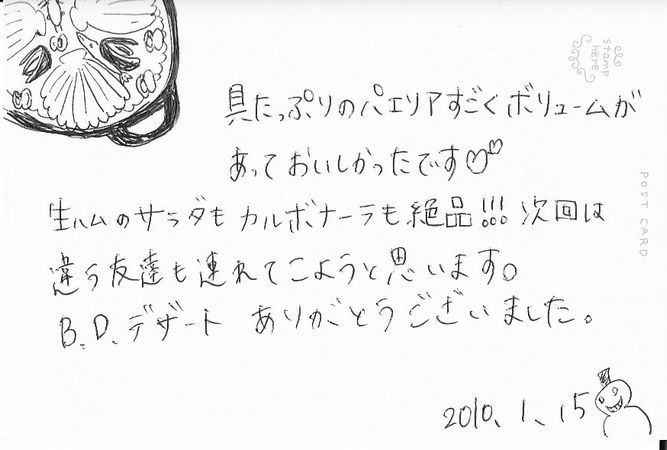 stamp
here
具たっぷりのパエリアすごくボリュームが
あっておいしかったです♡♡
生ハムのサラダもカルボナーラも絶品!!! 次回は
違う友達も連れてこようと思います。
B.D.デザート ありがとうございました。
2010.1.15
POST CARD